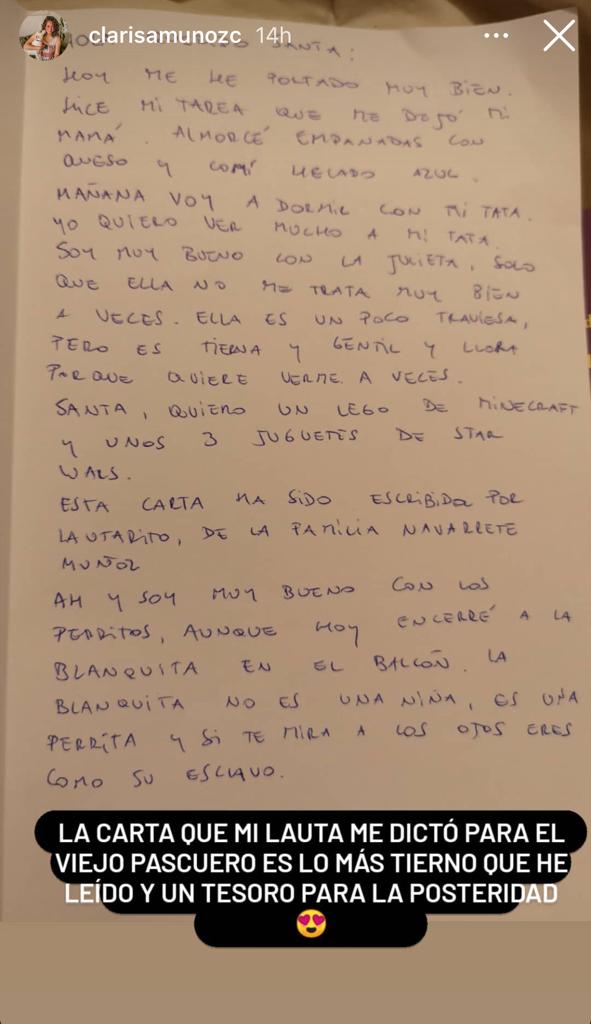 clarisamunozc 14h
SANTA:
HOY ME HE PORTADO MUY BIEN.
HICE MI TAREA QUE ME DEJÓ MI
MAMÁ. ALMORCÉ EMPANADAS CON
QUESO Y COMÍ HELADO AZUL.
MAÑANA VOY A DORMIR CON MI TATA.
YO QUIERO VER MUCHO A MI TATA.
SOY MUY BUENO CON LA JULIETA, SOLO
QUE ELLA NO ME TRATA MUY BIEN
A VECES. ELLA ES UN POCO TRAVIESA,
PERO ES TIERNA Y GENTIL Y LLORA
PORQUE QUIERE VERME A VECES.
SANTA, QUIERO UN LEGO DE MINECRAFT
Y UNOS 3 JUGUETES DE STAR
WARS.
ESTA CARTA HA SIDO ESCRIBIDA POR
LAUTARITO, DE LA FAMILIA NAVARRETE
MUÑOZ
AH Y SOY MUY BUENO CON LOS
PERRITOS, AUNQUE HOY ENCERRÉ A LA
BLANQUITA EN EL BALCÓN. LA
BLANQUITA NO ES UNA NIÑA, ES UNA
PERRITA Y SI TE MIRA A LOS OJOS ERES
COMO SU ESCLAVO.
LA CARTA QUE MI LAUTA ME DICTÓ PARA EL
VIEJO PASCUERO ES LO MÁS TIERNO QUE HE
LEÍDO Y UN TESORO PARA LA POSTERIDAD
😍